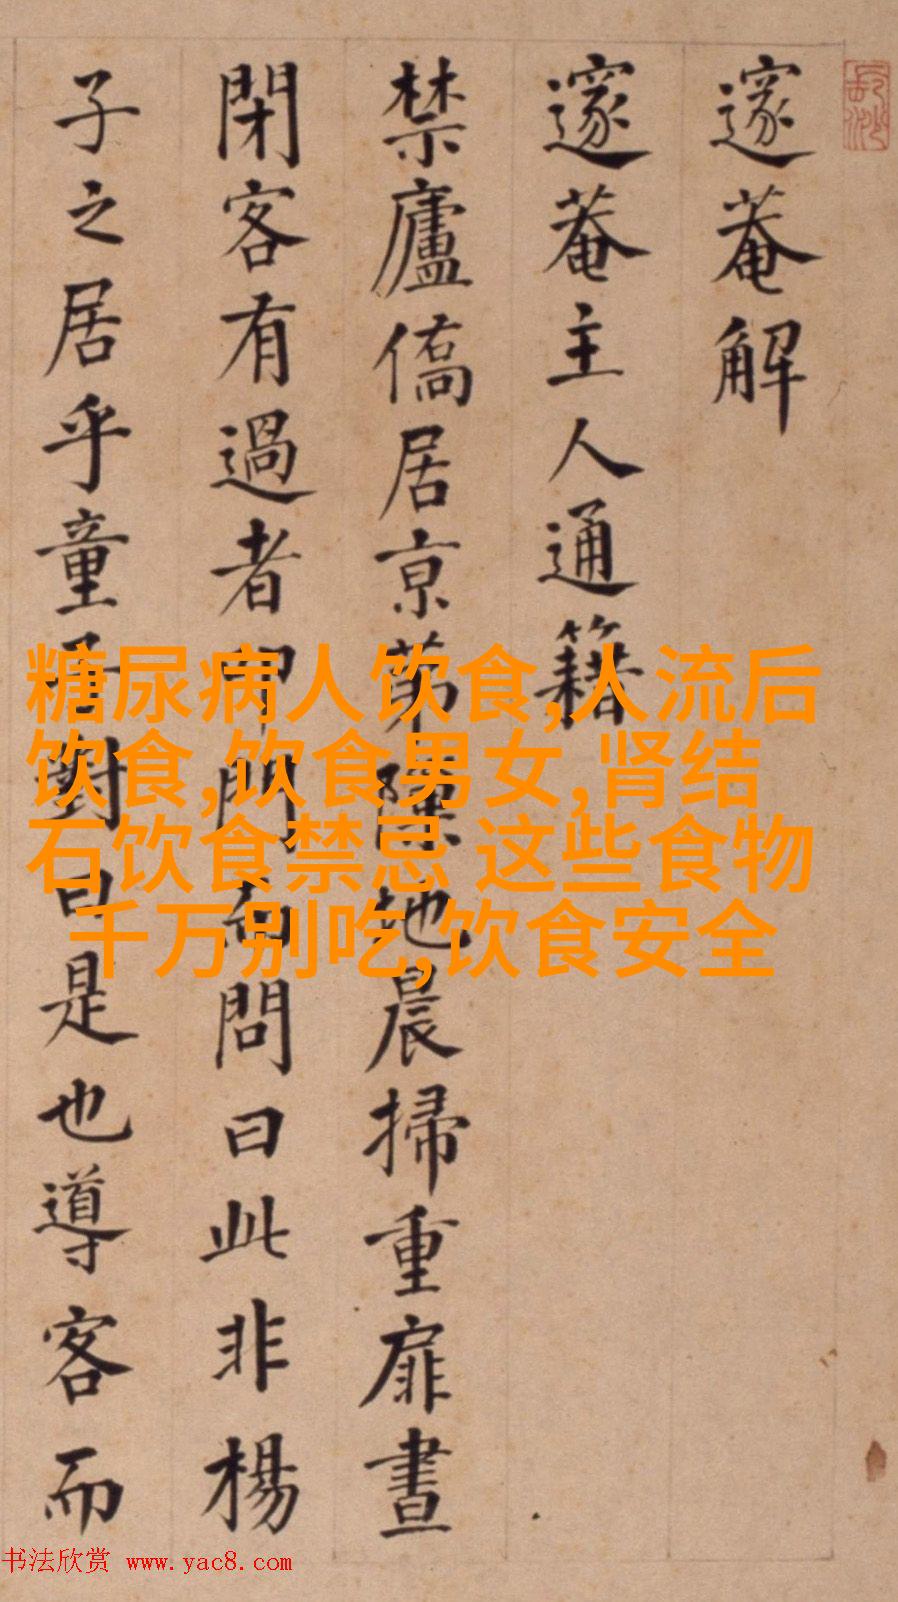 邃菴解
邃菴主人通籍
禁廬僑居京第地晨掃重扉晝
閉客有過者叩門問曰此非楊
子之居乎童子對曰是也導客而
糖尿病人饮食,人流后
饮食,饮食男女,肾结
石饮食禁忌 这些食物
千万别吃,饮食安全
书法欣赏 www.yac8.com